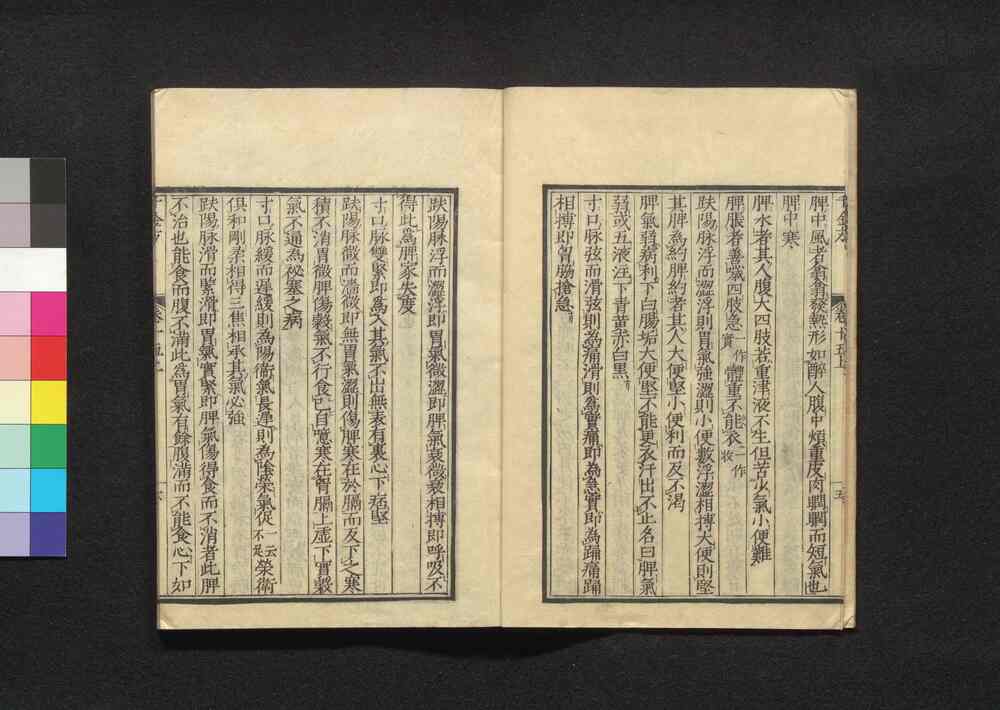 脾中風者翕翕發熱形如醉人腹中煩重皮肉瞤瞤而短氣也
脾中寒
脾水者其人腹大四肢苦重津液不生但苦少氣小便難
脾脹者善噦四肢急一作實體重不能衣一作收
趺陽脉浮而澀浮則胃氣強澀則小便數浮澀相摶大便則堅
其脾為約脾約者其人大便堅小便利而反不渴
脾氣弱病利下白腸垢大便堅不能更衣汗出不止名曰脾氣
弱或五液注下青黃赤白黑
寸口脉弦而滑弦則為痛滑則為實痛即為急實即為踊痛踊
相摶即胷脇搶急
趺陽脉浮而澀浮即胃氣微澀即脾氣衰微衰相摶即呼吸不
得此為脾家失度
寸口脉雙緊即為入其氣不出無表有裏心下痞堅
趺陽脉微而澀微即無胃氣澀則傷脾寒在於膈而反下之寒
積不消胃微脾傷穀氣不行食已自噫寒在胷膈上虛下實穀
氣不通為祕塞之病
寸口脉緩而遲緩則為陽衛氣長遲則為陰榮氣促一云不足榮衛
俱和剛柔相得三焦相承其氣必強
趺陽脉滑而緊滑即胃氣實緊即脾氣傷得食而不消者此脾
不治也能食而腹不滿此為胃氣有餘腹滿而不能食心下如